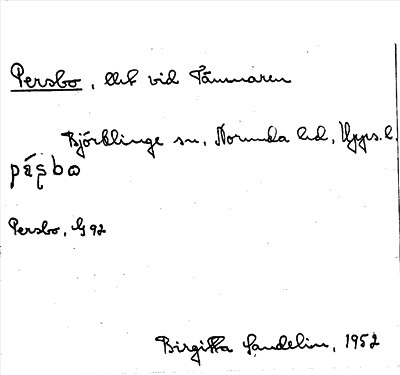 Persbo, vid Tämnaren
Björklinge sn, Norunda hd, Upps.l.
Persbo, G 92
Birgitta Sandelin, 1952